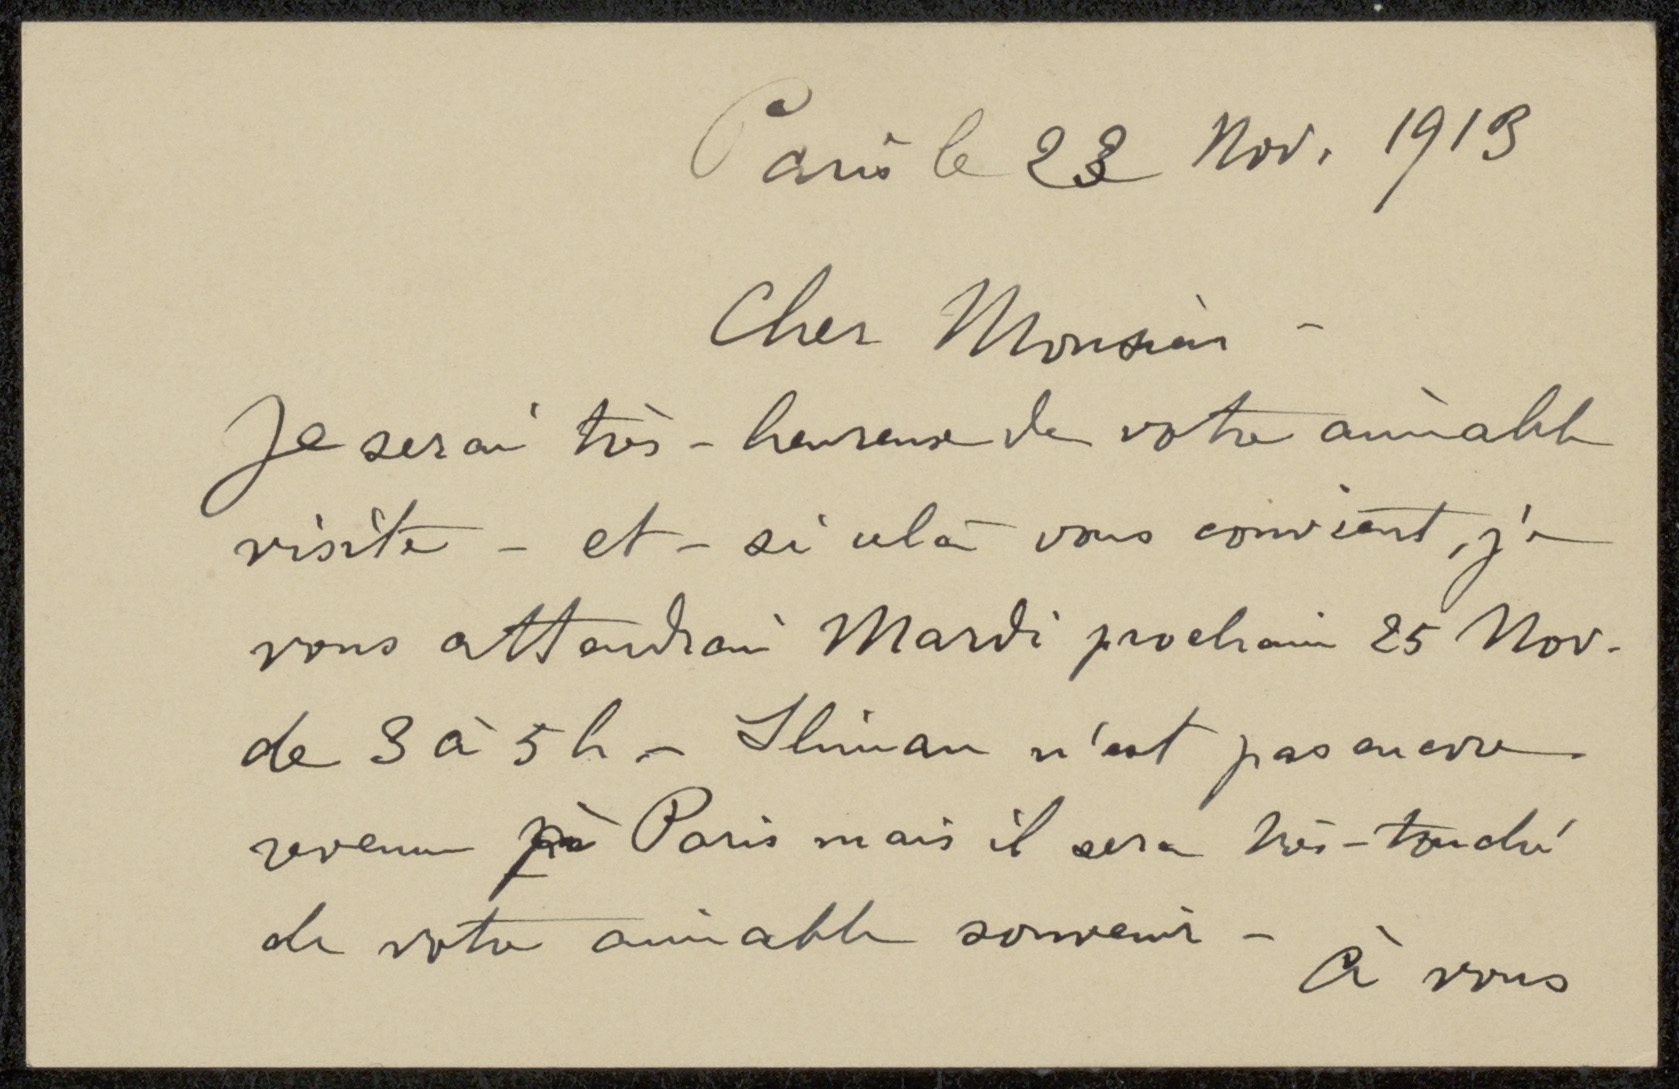 Paris le 23 Nov. 1913
Cher Monsieur –
Je serai très-heureuse de votre aimable
visite – et – si cela vous convient, je
vous attendrai Mardi prochain 25 Nov.
de 3 à 5 h – Sliman n'est pas encore
revenu à Paris mais il sera très-touché
de votre aimable souvenir –
à vous